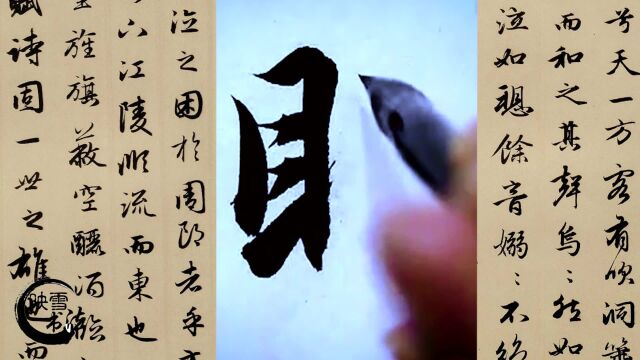 兮天一方客有吹洞簫
而和之其聲嗚嗚然如
泣如餘音嫋〻不絕
目
之困於周郎者乎方
下江陵順流而東也
里旌旗蔽空釃酒臨
賦詩固一世之雄
映雪
书